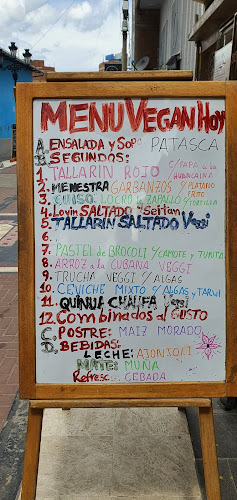 MENU VEGAN HOY
A. ENSALADA y Sopa PATASCA
B. SEGUNDOS:
1. TALLARIN ROJO C/PAPA a la HUANCAINA
2. MENESTRA GARBANZOS y PLATANO FRITO
3. GUISO LOCRO de ZAPALLO C/TORTILLA
4. Lovin SALTADO y Seitan
5. TALLARIN SALTADO Veggi
6.
7. PASTEL de BROCOLI y CAMOTE y TUNITA
8. ARROZ a la CUBANA VEGGI
9. TRUCHA VEGGI y ALGAS
10. CEVICHE MIXTO y ALGAS y TARWI
11. QUINUA CHAUFA Veggi
12. Combinados al GUSTO
C. POSTRE: MAIZ MORADO
D. BEBIDAS:
LECHE: AJONJOLI
MATE: MUÑA
Refresc... CEBADA